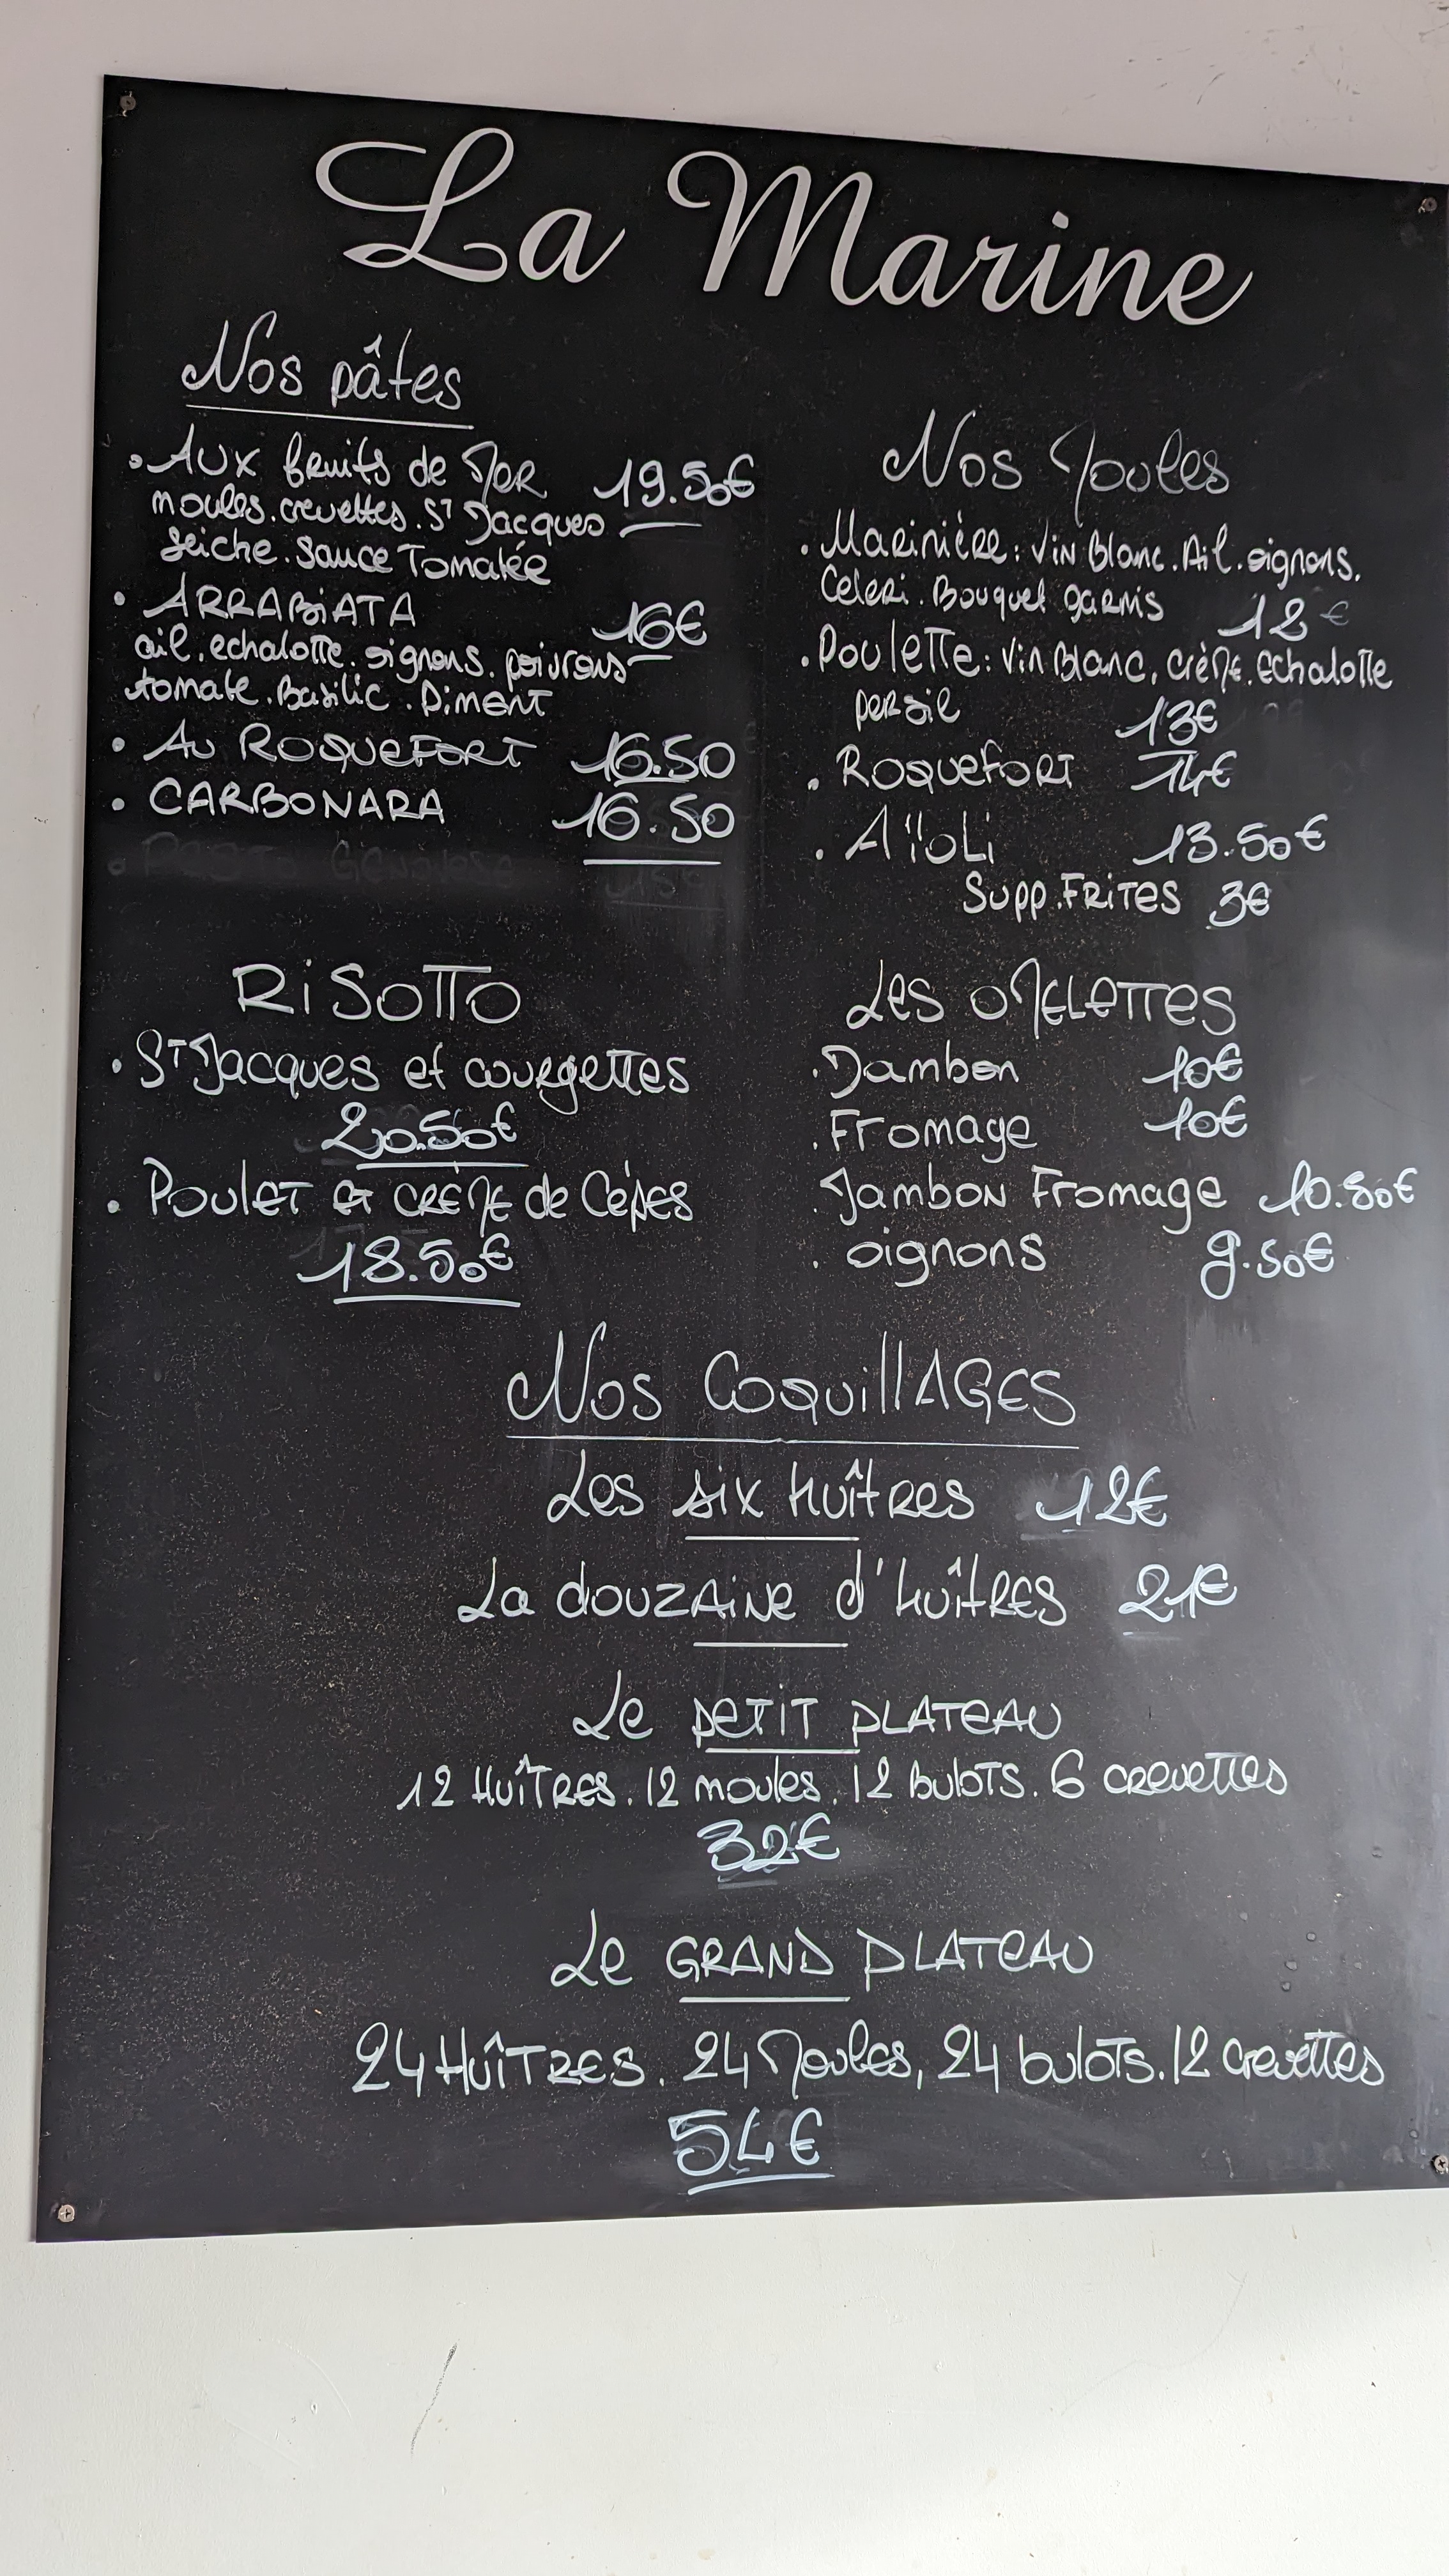 La Marine
Nos pâtes
• Aux fruits de Mer 19.50€
moules. crevettes. St Jacques
seiche. Sauce Tomatée
• ARRABiATA 16€
ail. echalotte. oignons. poivrons
tomate. Basilic. PiMENT
• Au ROQUEFORT 16.50
• CARBONARA 16.50
Nos Moules
. Marinière: Vin Blanc. Ail. oignons.
Celeri. Bouquet garnis 12€
. Poulette: Vin Blanc, Crème. Echalotte
persil 13€
. Roquefort 14€
. Aïoli 13.50€
Supp. FRiTES 3€
RiSOTTO
• St Jacques et courgettes
20.50€
• Poulet et crème de Cèpes
18.50€
Les OMELETTES
. Jambon 10€
. Fromage 10€
. Jambon Fromage 10.50€
. oignons 9.50€
Nos CoquillAGES
Les six huîtres 12€
La douzaine d'huîtres 21€
Le PETIT PLATEAU
12 HUÎTRES. 12 moules. 12 buloTS. 6 crevettes
32€
Le GRAND PLATEAU
24 HUÎTRES. 24 Moules, 24 buloTs. 12 crevettes
54€